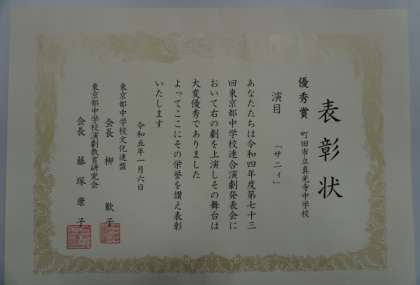 表彰状
優秀賞 町田市立真光寺中学校
演目 「サニィ」
あなたたちは令和四年度第七十三
回東京都中学校連合演劇発表会に
おいて右の劇を上演しその舞台は
大変優秀でありました
よってここにその栄誉を讃え表彰
いたします
令和五年一月六日
東京都中学校文化連盟
会長 柳 歓子
東京都中学校演劇教育研究会
会長 藤塚 康子